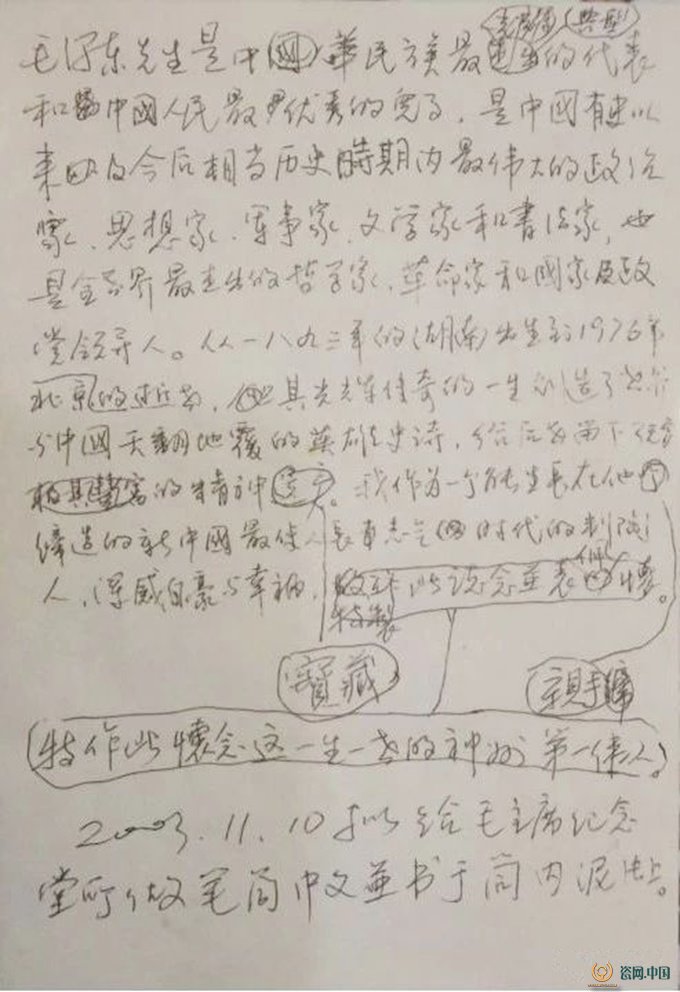 典型
毛泽东先生是中國華民族最的代表
和中國人民最优秀的兒子，是中國有史以
来及今后相当历史時期内最伟大的政治
家、思想家、军事家、文学家和書法家，也
是全世界最杰出的哲学家、革命家和國家及政
党领导人。从一八九三年的(湖南)出生到1976年
北京的逝世，其光辉传奇的一生创造了
与中國天翻地覆的英雄史诗，给后留下
极其豐富的精神。我作为一个能生長在他
缔造的新中國最時代的制陶
人，深感自豪与幸福，故作此念並表懷。
特製
寶藏
親手
特作此懷念这一生一世的神州第一伟人。
2003.11.10拟给毛主席纪念
堂所做笔筒中文並书于筒内泥上。
盗网.中国